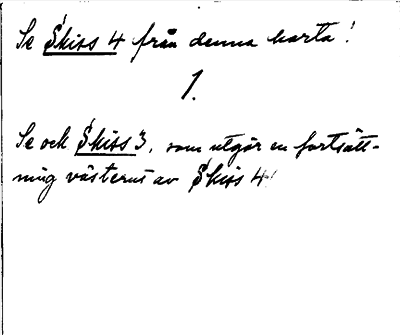 Se Skiss 4 från denna karta!
1.
Se och Skiss 3, som utgör en fortsätt-
ning västerut av Skiss 4